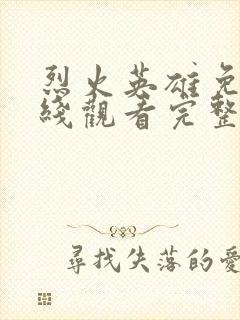 烈火英雄免
綫觀看完整
尋找失落的愛